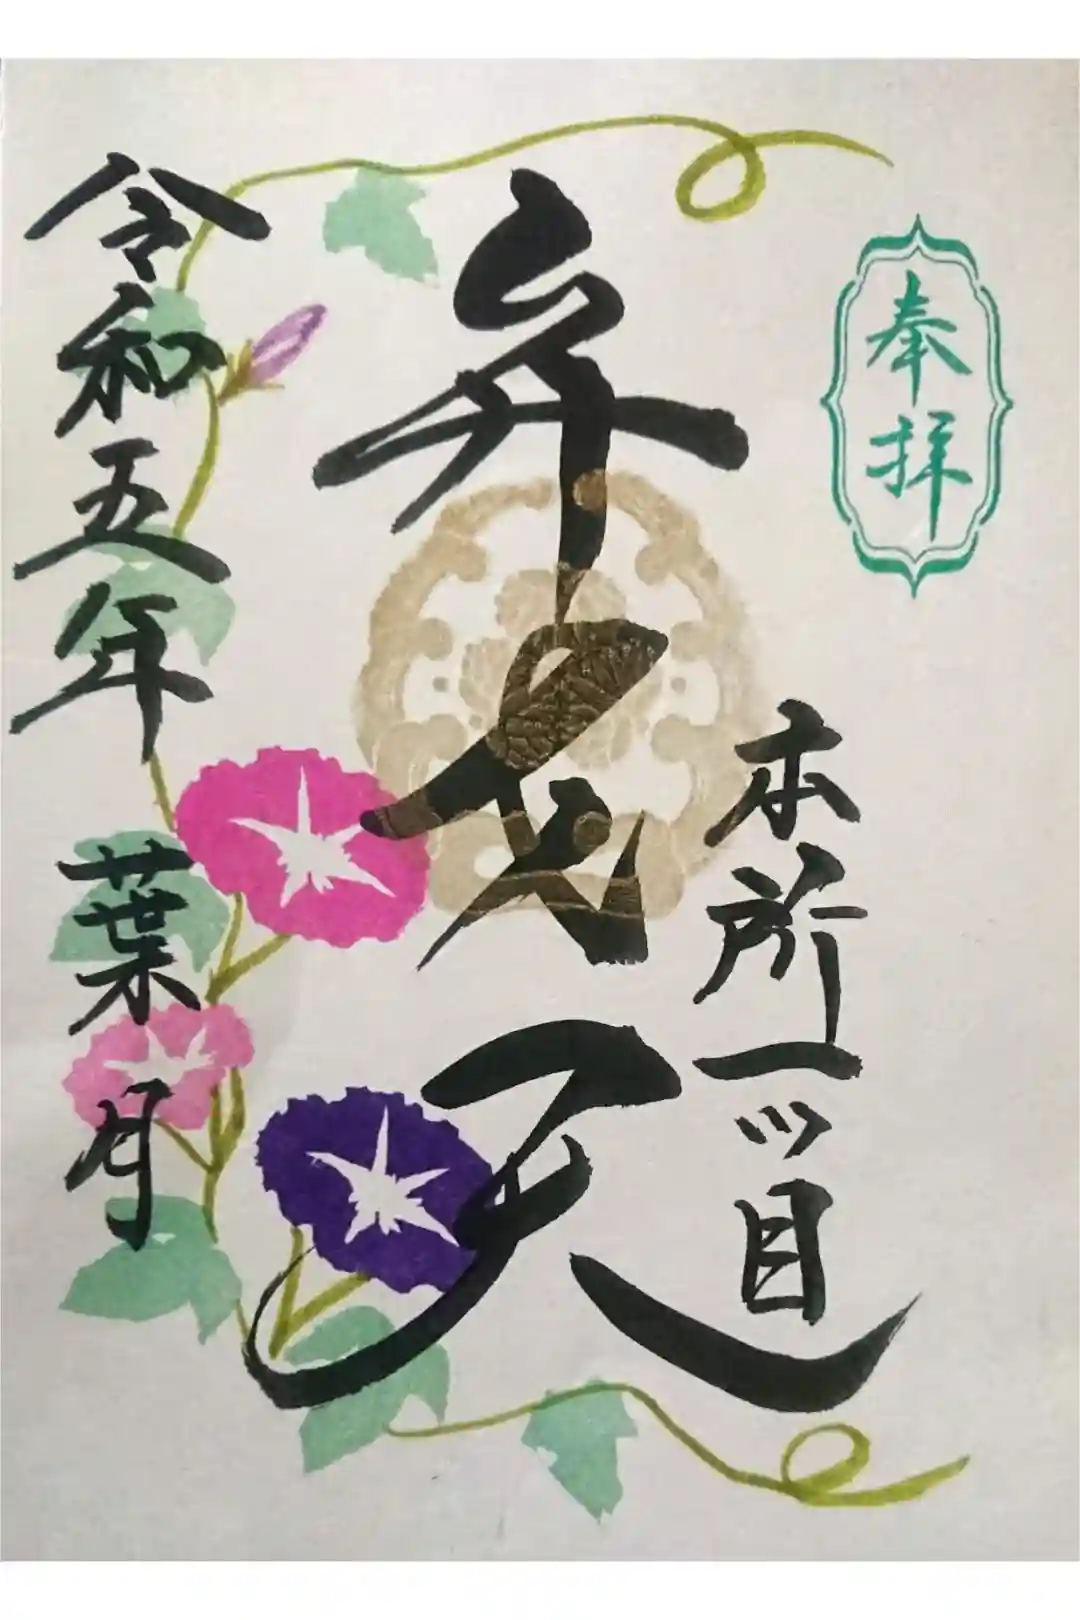 奉拝
本所一ツ目
弁才天
令和五年
葉月